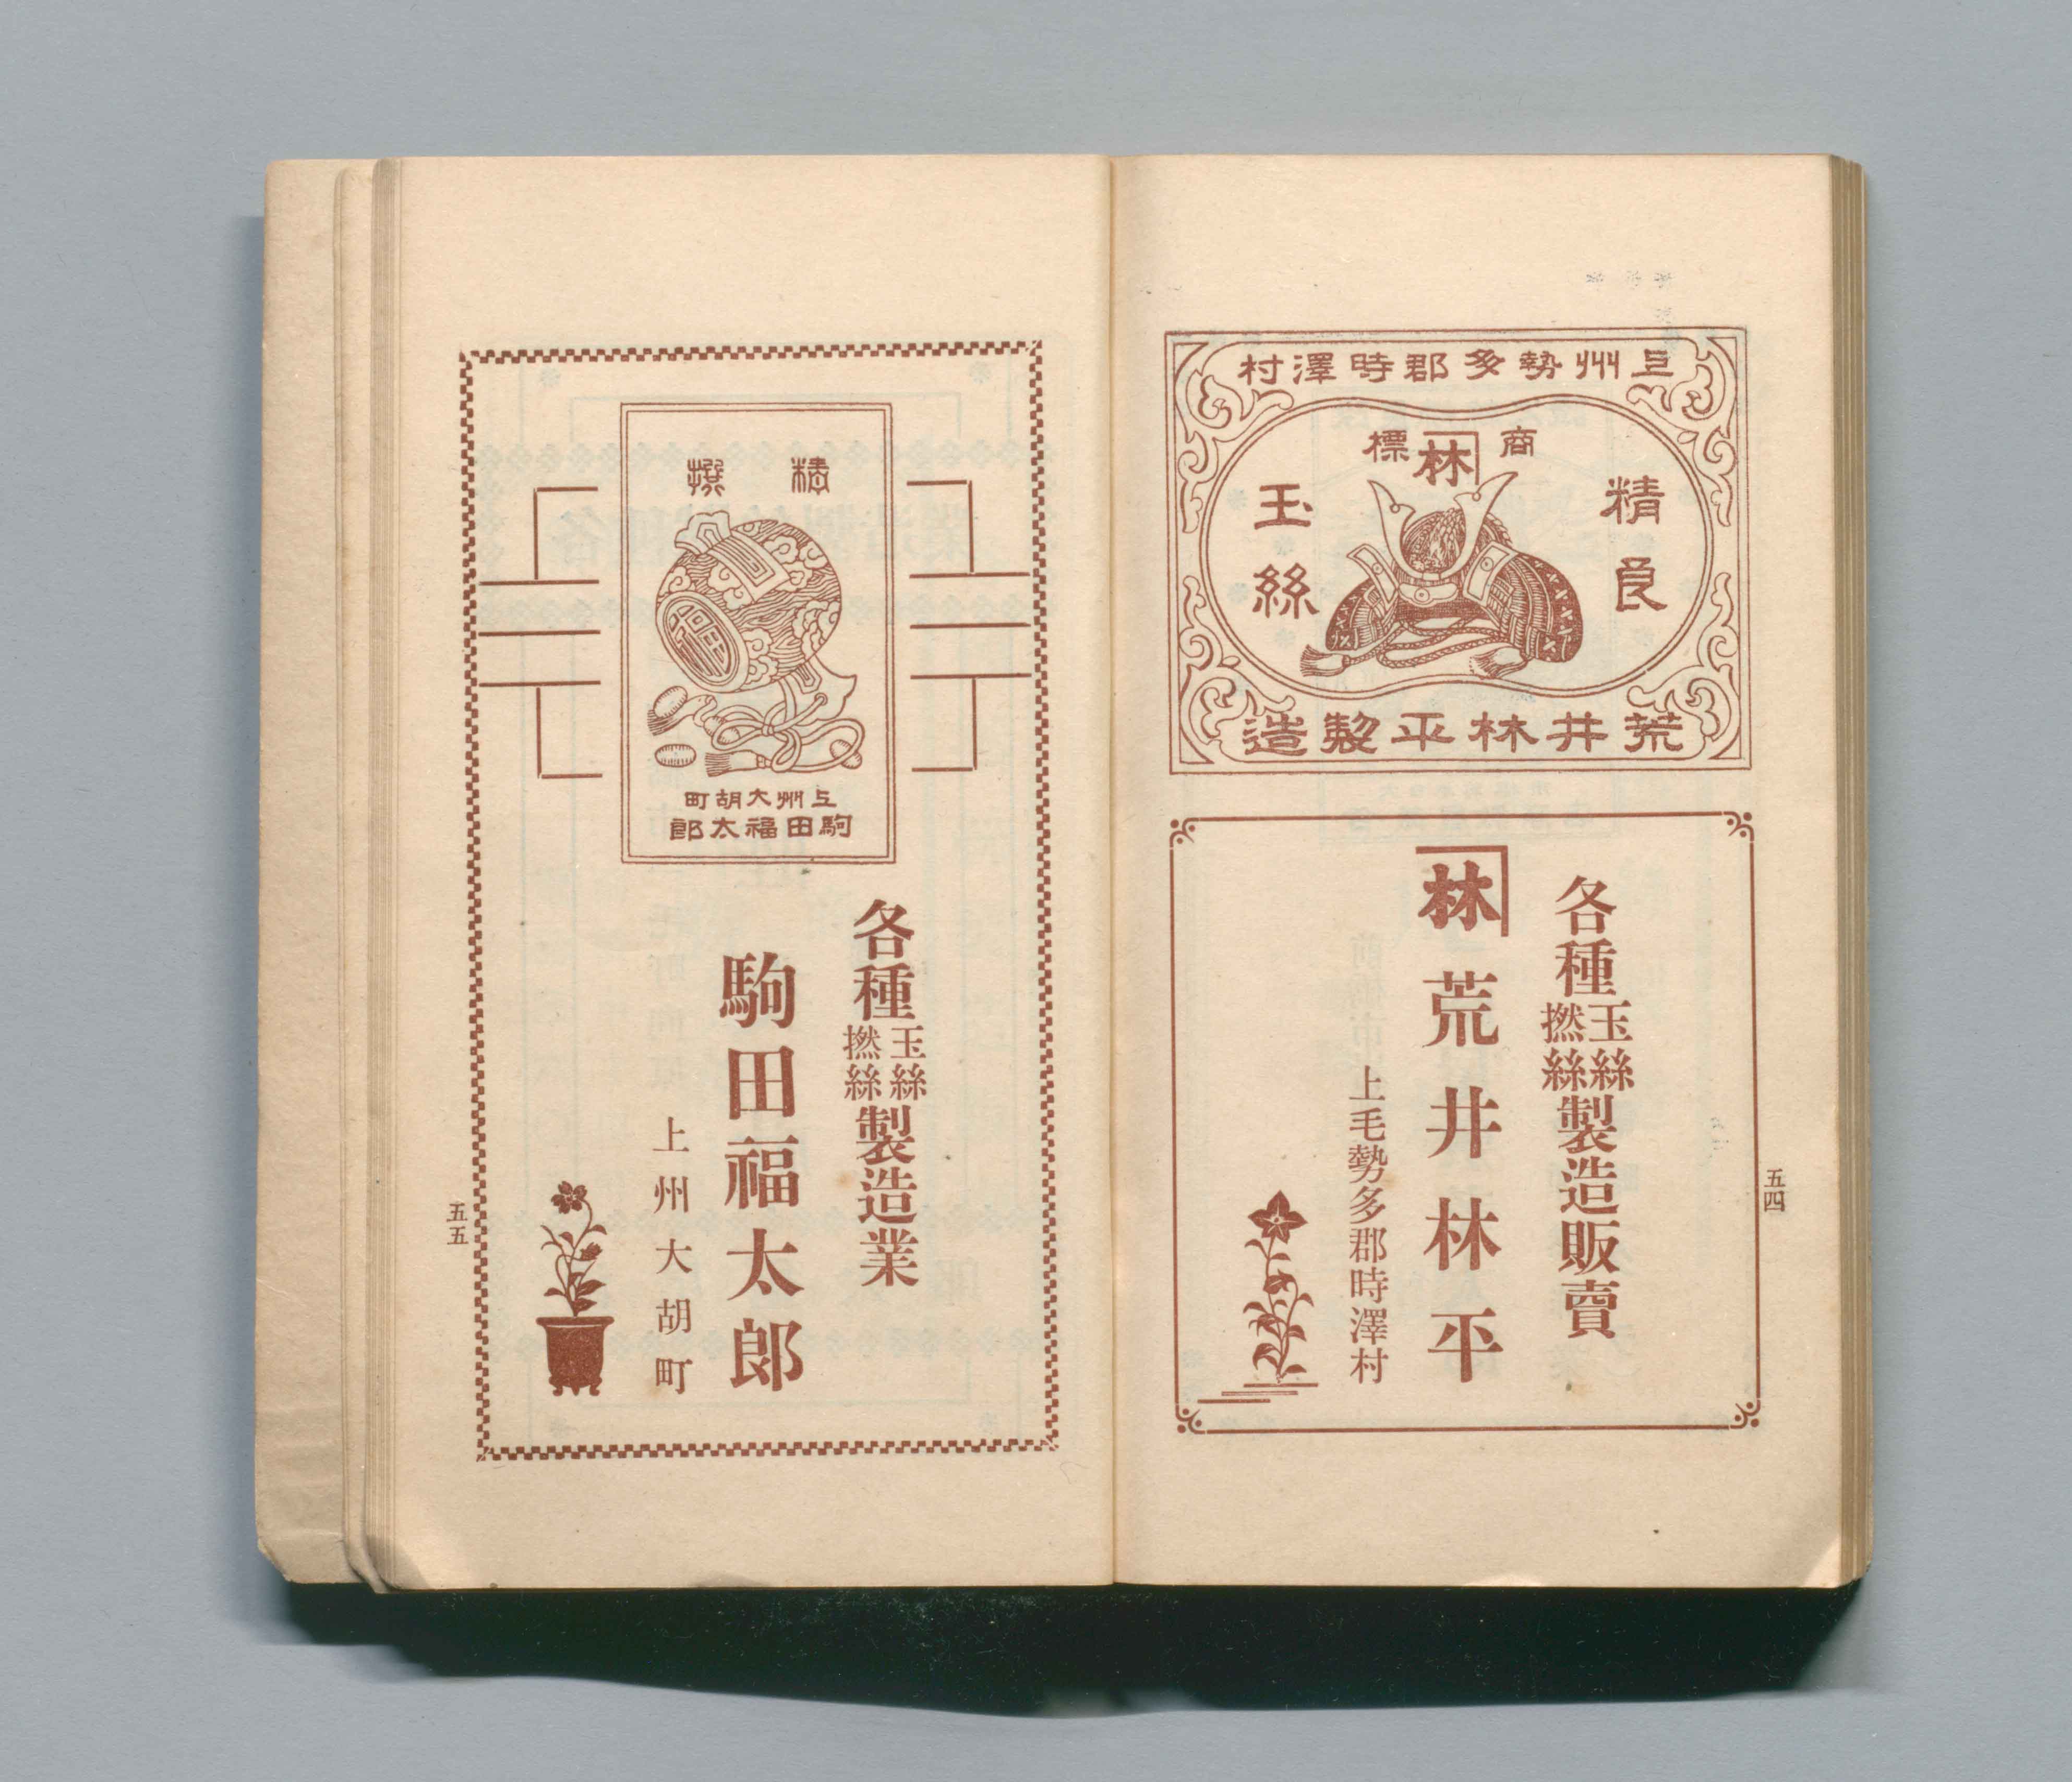 上州勢多郡時澤村
商標
林
精良
玉絲
荒井林平製造
各種玉絲撚絲製造販賣
林 荒井林平
上毛勢多郡時澤村
五四
精撰
福
上州大胡町
駒田福太郎
各種玉絲撚絲製造業
駒田福太郎
上州大胡町
五五